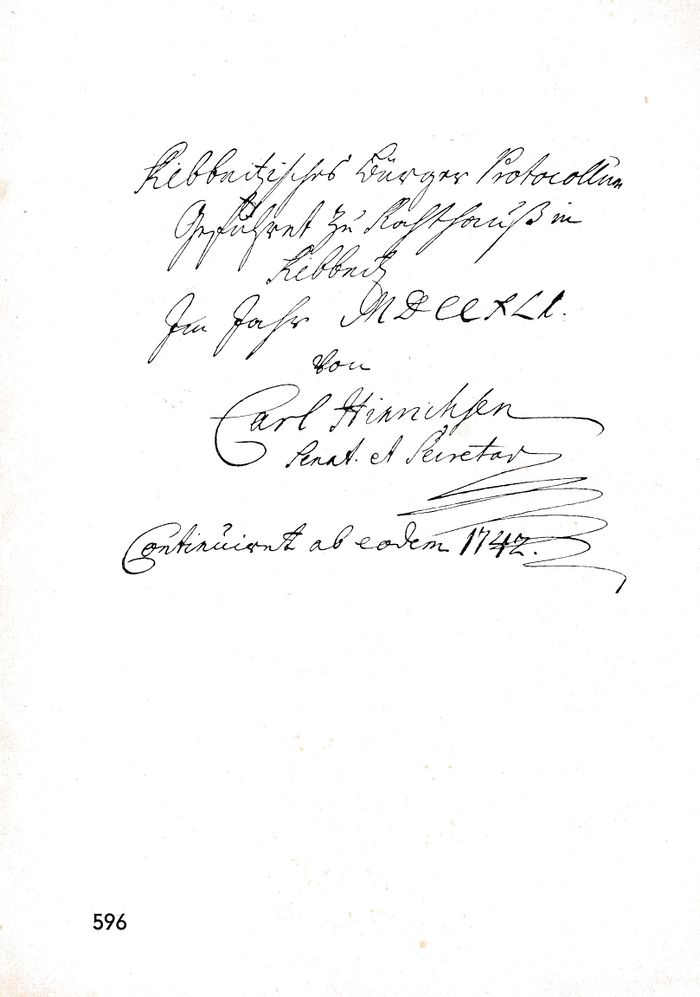 Ribbnitzisches Bürger Protocollum
Geführet zu Rahthauß in
Ribbnitz
Im Jahr MDCCXLI.
von
Carl Hinrichsen
Senat. et Secretar
Continuiret ab eodem 1742.
596